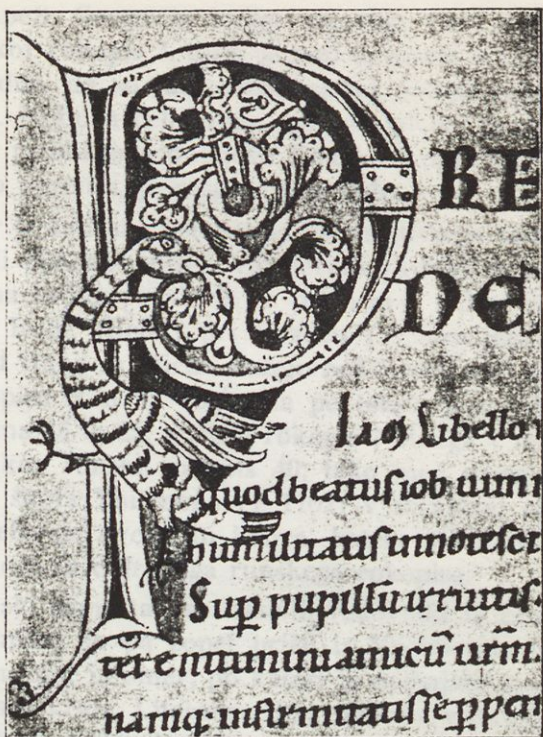 PRE
DE
Iam Libello
quod beatus iob
humilitatis innotesc
Sup̲ pupillū irruitis.
tere nitimini amicū urm̄.
namq; infirmitatis se p̲pen